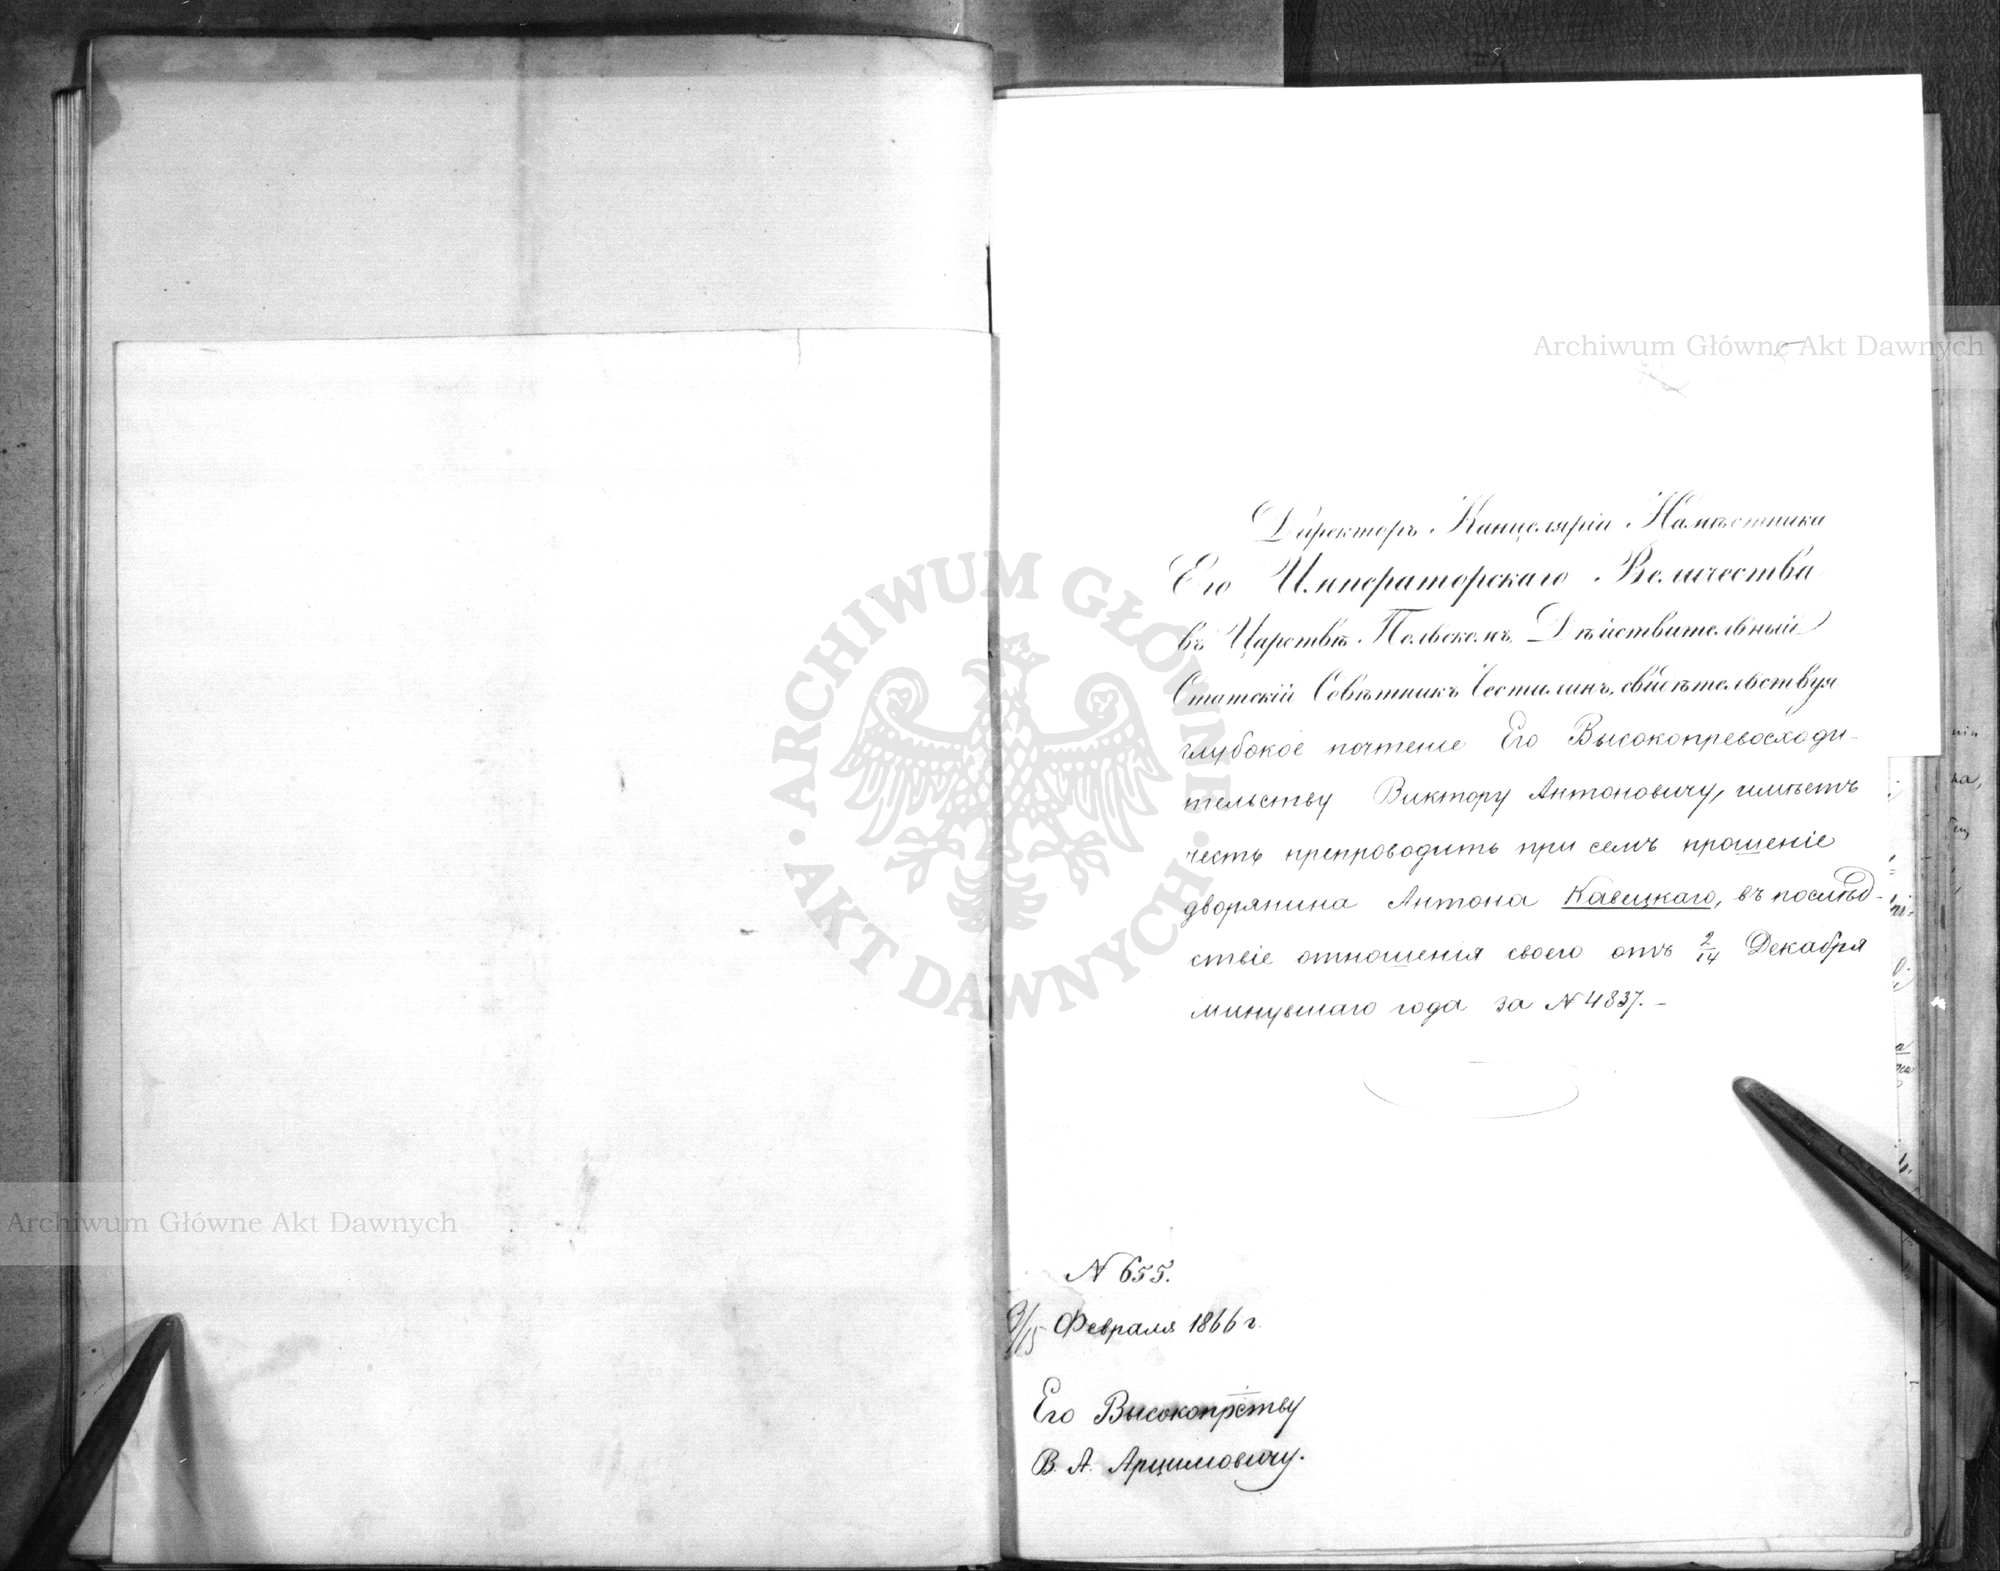 Директоръ Канцеляріи Намѣстника
Его Императорскаго Величества
въ Царствѣ Польскомъ, Дѣйствительный
Статскій Совѣтникъ Честилинъ, свидѣтельствуя
глубокое почтеніе Его Высокопревосходи-
тельству Виктору Антоновичу, имѣетъ
честь препроводить при семъ прошеніе
дворянина Антона Кавецкаго, въ послѣд-
ствіе отношенія своего отъ 2/14 Декабря
минувшаго года за № 4837.-
№ 655.
3/15 Февраля 1866 г.
Его Высокопрству
В. А. Арцимовичу.
Archiwum Główne Akt Dawnych
Archiwum Główne Akt Dawnych
ARCHIWUM GŁÓWNE · AKT DAWNYCH ·